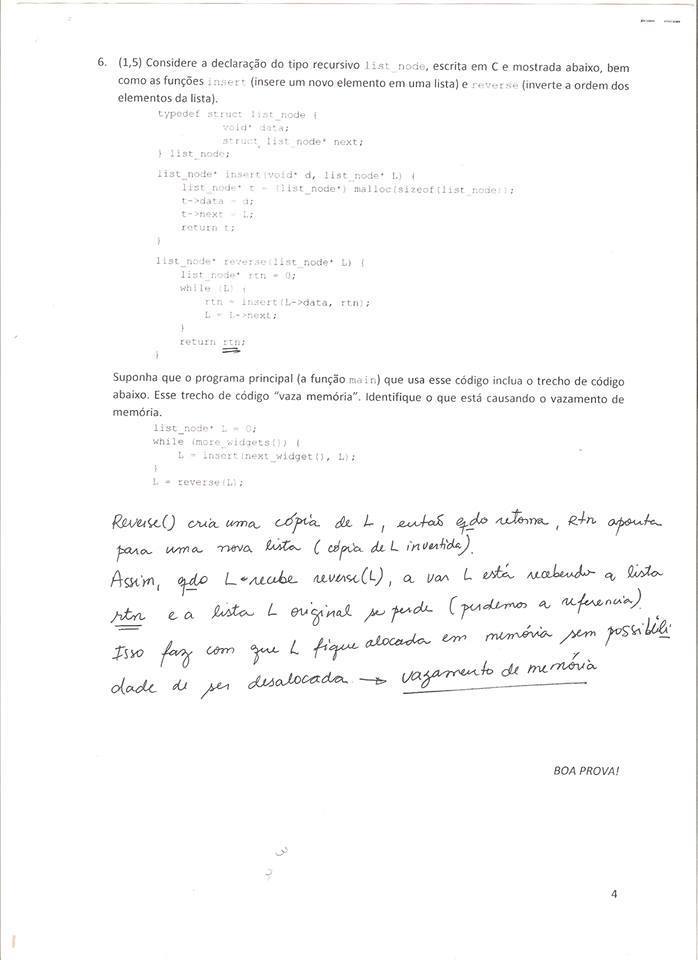 6. (1,5) Considere a declaração do tipo recursivo list_node, escrita em C e mostrada abaixo, bem
como as funções insert (insere um novo elemento em uma lista) e reverse (inverte a ordem dos
elementos da lista).
typedef struct list_node {
void* data;
struct list_node* next;
} list_node;
list_node* insert(void* d, list_node* L) {
list_node* t = (list_node*) malloc(sizeof(list_node));
t->data = d;
t->next = L;
return t;
}
list_node* reverse(list_node* L) {
list_node* rtn = 0;
while (L) {
rtn = insert(L->data, rtn);
L = L->next;
}
return rtn;
}
Suponha que o programa principal (a função main) que usa esse código inclua o trecho de código
abaixo. Esse trecho de código “vaza memória”. Identifique o que está causando o vazamento de
memória.
list_node* L = 0;
while (more_widgets()) {
L = insert(next_widget(), L);
}
L = reverse(L);
Reverse() cria uma cópia de L, então qdo retorna, Rtn aponta
para uma nova lista (cópia de L invertida).
Assim, qdo L recebe reverse(L), a var L está recebendo a lista
rtn e a lista L original se perde (perdemos a referencia).
Isso faz com que L fique alocada em memória sem possibili
dade de ser desalocada → vazamento de memória
BOA PROVA!
4